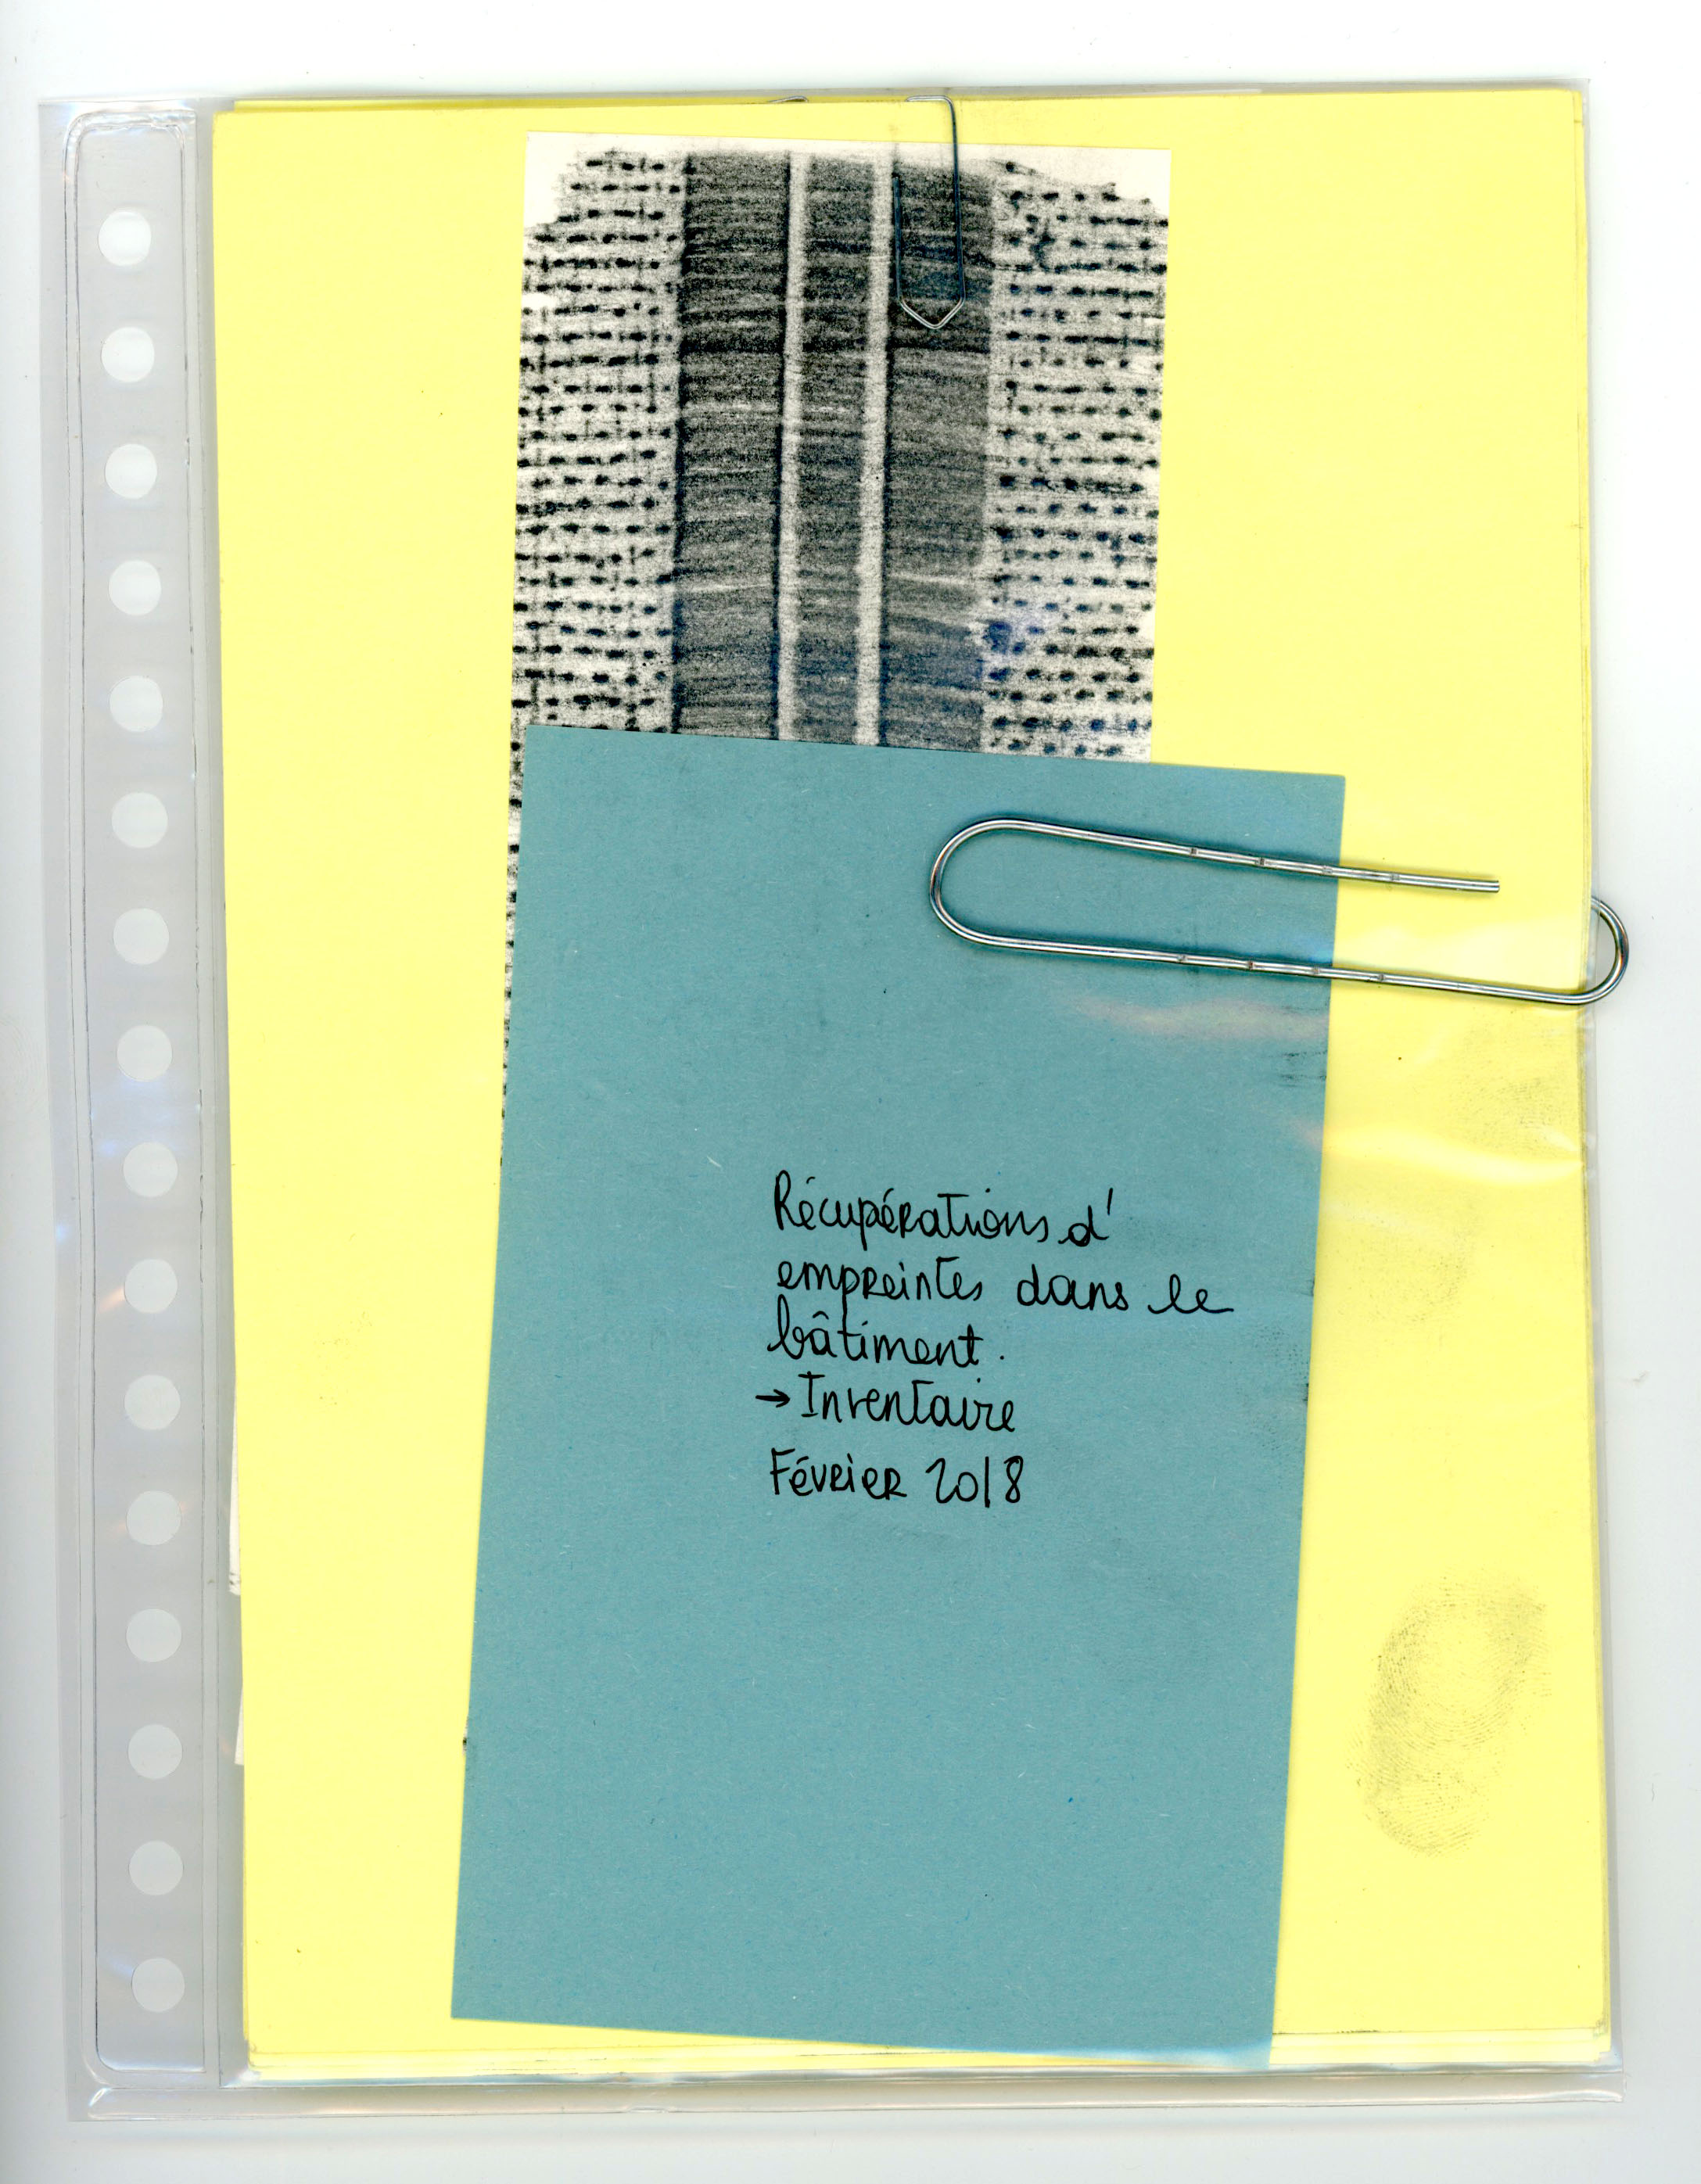 Récupérations d'
empreintes dans le
bâtiment.
→ Inventaire
Février 2018